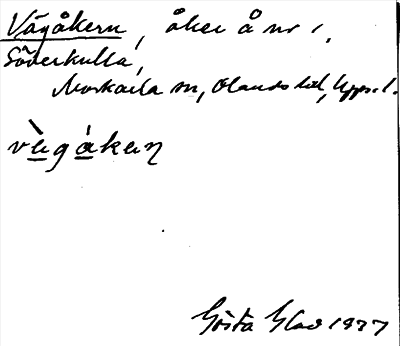 Vägåkern, åker å nr 1,
Söderkulla,
Morkarla sn, Olands hd, Upps. l.
vägåkeɳ
Gösta Glad 1937